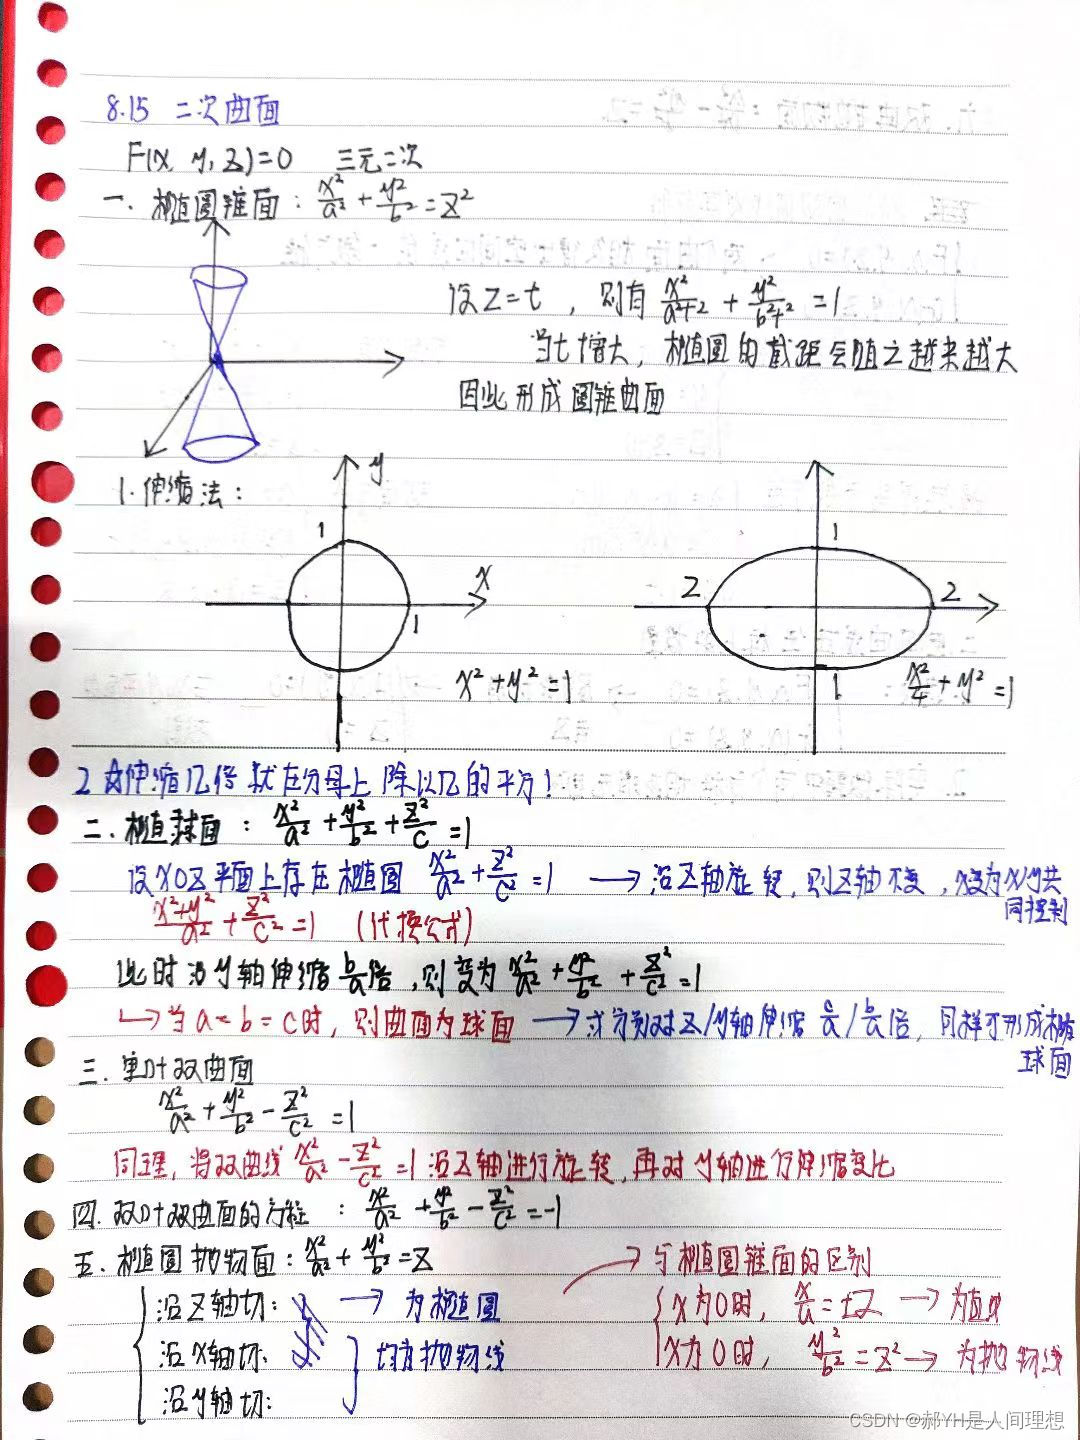 8.15 二次曲面
F(x, y, z)=0 三元二次
一. 椭圆锥面: x²/a² + y²/b² = z²
设 z=t , 则有 x²/a²t² + y²/b²t² = 1
当t增大, 椭圆的截距会随之越来越大
因此形成圆锥曲面
1. 伸缩法:
y
1
x
1
x²+y²=1
1
2
2
1
x²/4 + y² = 1
2 伸缩几倍就在分母上除以几的平方!
二. 椭球面: x²/a² + y²/b² + z²/c = 1
设 xoz 平面上存在椭圆 x²/a² + z²/c² = 1 → 沿z轴旋转, 则z轴不变, x变为x/y共
同控制
x²+y²/a² + z²/c² = 1 (代换公式)
此时沿y轴伸缩 b/a 倍, 则变为 x²/a² + y²/b² + z²/c² = 1
↳ 当 a=b=c时, 则曲面为球面 → 球分别对z/y轴伸缩 倍, 同样可形成椭
球面
三. 单叶双曲面
x²/a² + y²/b² - z²/c² = 1
同理, 将双曲线 x²/a² - z²/c² = 1 沿z轴进行旋转, 再对y轴进行伸缩变化
四. 双叶双曲面的方程: x²/a² + y²/b² - z²/c² = -1
五. 椭圆抛物面: x²/a² + y²/b² = z
→ 与椭圆锥面的区别
沿z轴切: → 为椭圆
沿x轴切:
沿y轴切:
均为抛物线
x为0时, x/a = ±z → 为直线
x为0时, y²/b² = z² → 为抛物线
CSDN @郝YH是人间理想